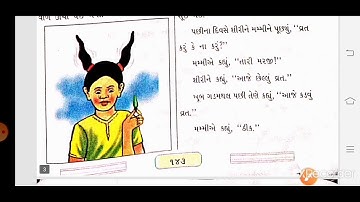 પછીના દિવસે શીરીને મમ્મીને પૂછ્યું, "વ્રત
કરું કે ના કરું?"
મમ્મીએ કહ્યું, "તારી મરજી!"
શીરીને કહ્યું, "આજે છેલ્લું વ્રત."
ખૂબ ગડમથલ પછી તેણે કહ્યું, "આજે કડવું
વ્રત."
મમ્મીએ કહ્યું, "ઠીક."
૧૪૩
3